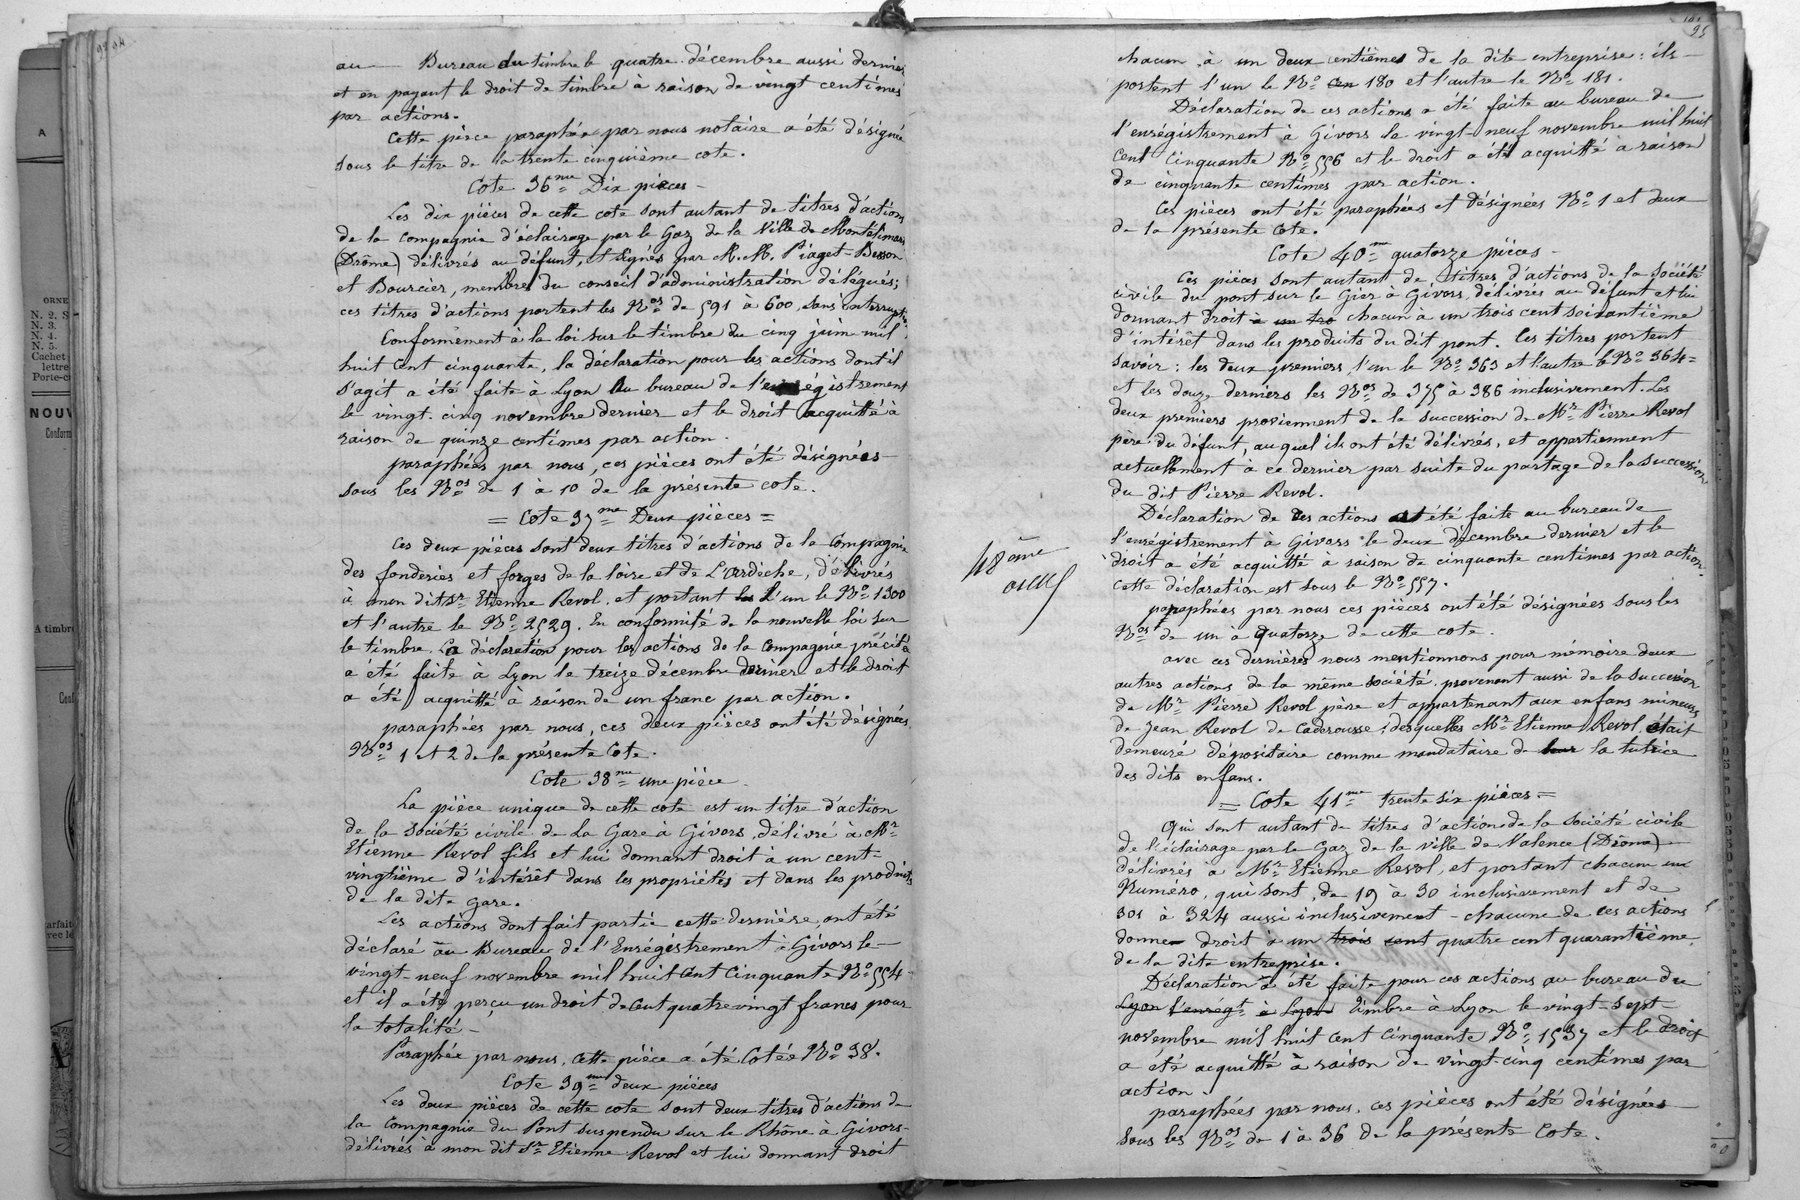 94
au — Bureau du timbre le quatre décembre aussi dernier
et en payant le droit de timbre à raison de vingt centimes
par actions.
Cette pièce paraphée par nous notaire a été désignée
sous le titre de la trente cinquième cote.
Cote 36me Dix pièces –
Les dix pièces de cette cote sont autant de titres d'actions
de la compagnie d'éclairage par le Gaz de la Ville de Montélimar
(Drôme) délivrés au défunt, et signés par M.M. Piaget-Besson
et Bourcier, membres du conseil d'administration délégués;
ces titres d'actions portent les Nos de 591 à 600 sans interruption.
Conformément à la loi sur le timbre du cinq juin mil
huit cent cinquante, la déclaration pour les actions dont il
s'agit a été faite à Lyon au bureau de l'enrégistrement
le vingt-cinq novembre dernier et le droit acquitté à
raison de quinze centimes par action.
paraphées par nous, ces pièces ont été désignées
sous les Nos de 1 à 10 de la présente cote.
= Cote 37me Deux pièces =
Ces deux pièces sont deux titres d'actions de la Compagnie
des fonderies et forges de la loire et de L'ardèche, délivrés
à mon dit Sr Etienne Revol et portant les l'un le No 1300
et l'autre le No 2529. En conformité de la nouvelle loi sur
le timbre. La déclaration pour les actions de la compagnie précitée
a été faite à Lyon le treize décembre dernier et le droit
a été acquitté à raison de un franc par action.
paraphées par nous, ces deux pièces ont été désignées
Nos 1 et 2 de la présente Cote.
Cote 38me une pièce
La pièce unique de cette cote est un titre d'action
de la société civile de La Gare à Givors, délivré à Mr
Etienne Revol fils et lui donnant droit à un cent-
vingtième d'intérêt dans les propriétés et dans les produits
de la dite gare.
Les actions dont fait partie cette dernière, ont été
déclaré au Bureau de l'Enrégistrement à Givors le –
vingt-neuf novembre mil huit cent cinquante No 554 –
et il a été perçu un droit de cent quatre vingt francs pour
la totalité –
Paraphée par nous, cette pièce a été Cotée No 38.
Cote 39me deux pièces
Les deux pièces de cette cote sont deux titres d'actions de
la Compagnie du Pont suspendu sur le Rhône à Givors-
délivrés à mon dit Sr Etienne Revol et lui donnant droit
95
chacun à un deux centièmes de la dite entreprise: ils –
portent l'un le No 180 et l'autre le No 181.
Déclaration de ces actions a été faite au bureau de
l'enrégistrement à Givors le vingt-neuf novembre mil huit
cent cinquante No 556 et le droit a été acquitté à raison
de cinquante centimes par action.
Ces pièces ont été paraphées et désignées No 1 et deux
de la présente cote.
Cote 40me quatorze pièces –
Ces pièces sont autant de titres d'actions de la Société
civile du pont sur le Gier à Givors, délivrés au défunt et lui
donnant droit à un tro chacun à un trois cent soixantième
d'intérêt dans les produits du dit pont. Ces titres portent
savoir: les deux premiers l'un le No 363 et l'autre le No 364 =
et les douze derniers les Nos de 375 à 386 inclusivement. Les
deux premiers proviennent de la succession de Mr Pierre Revol
père du défunt, auquel ils ont été délivrés, et appartiennent
actuellement à ce dernier par suite du partage de la succession
du dit Pierre Revol.
Déclaration de ces actions a été faite au bureau de
l'enrégistrement à Givors le deux décembre dernier et le
droit a été acquitté à raison de cinquante centimes par action.
cette déclaration est sous le No 557.
paraphées par nous ces pièces ont été désignées sous les
Nos de un à quatorze de cette cote.
avec ces dernières nous mentionnons pour mémoire deux
autres actions de la même société, provenant aussi de la succession
de Mr Pierre Revol père et appartenant aux enfans mineurs
de Jean Revol de Caderousse; desquelles Mr Etienne Revol était
demeuré dépositaire comme mandataire de leur la tutrice
des dits enfans.
= Cote 41me trente six pièces =
Qui sont autant de titres d'action de la société civile
de l'éclairage par le Gaz de la ville de Valence (Drôme) –
délivrés à Mr Etienne Revol, et portant chacun un
Numéro, qui sont, de 19 à 30 inclusivement et de
301 à 324 aussi inclusivement – chacune de ces actions
donne droit à un trois cent quatre cent quarantième
de la dite entreprise.
Déclaration a été faite pour ces actions au bureau du
Lyon l'enrégt à Lyon timbre à Lyon le vingt-sept
novembre mil huit cent cinquante No 1537 et le droit
a été acquitté à raison de vingt-cinq centimes par
action.
paraphées par nous, ces pièces ont été désignées
sous les Nos de 1 à 36 de la présente Cote.
48ème
A
N. 2. S
N. 3.
N. 4.
N. 5.
Cachet
lettre
Porte-c
NOUV
Conform
A timbr
Conf